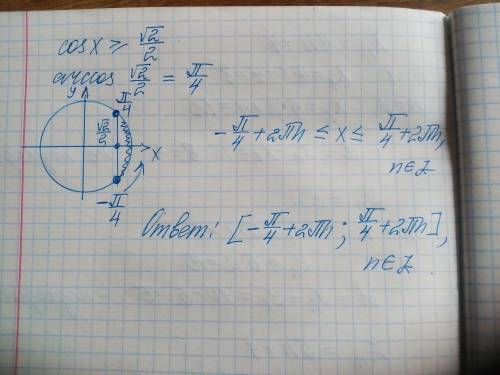 cos x ≥ √2/2
arccos √2/2 = π/4
y
π/4
√2/2
x
-π/4
-π/4 + 2πn ≤ x ≤ π/4 + 2πn,
n∈Z
Ответ: [-π/4 + 2πn; π/4 + 2πn],
n∈Z